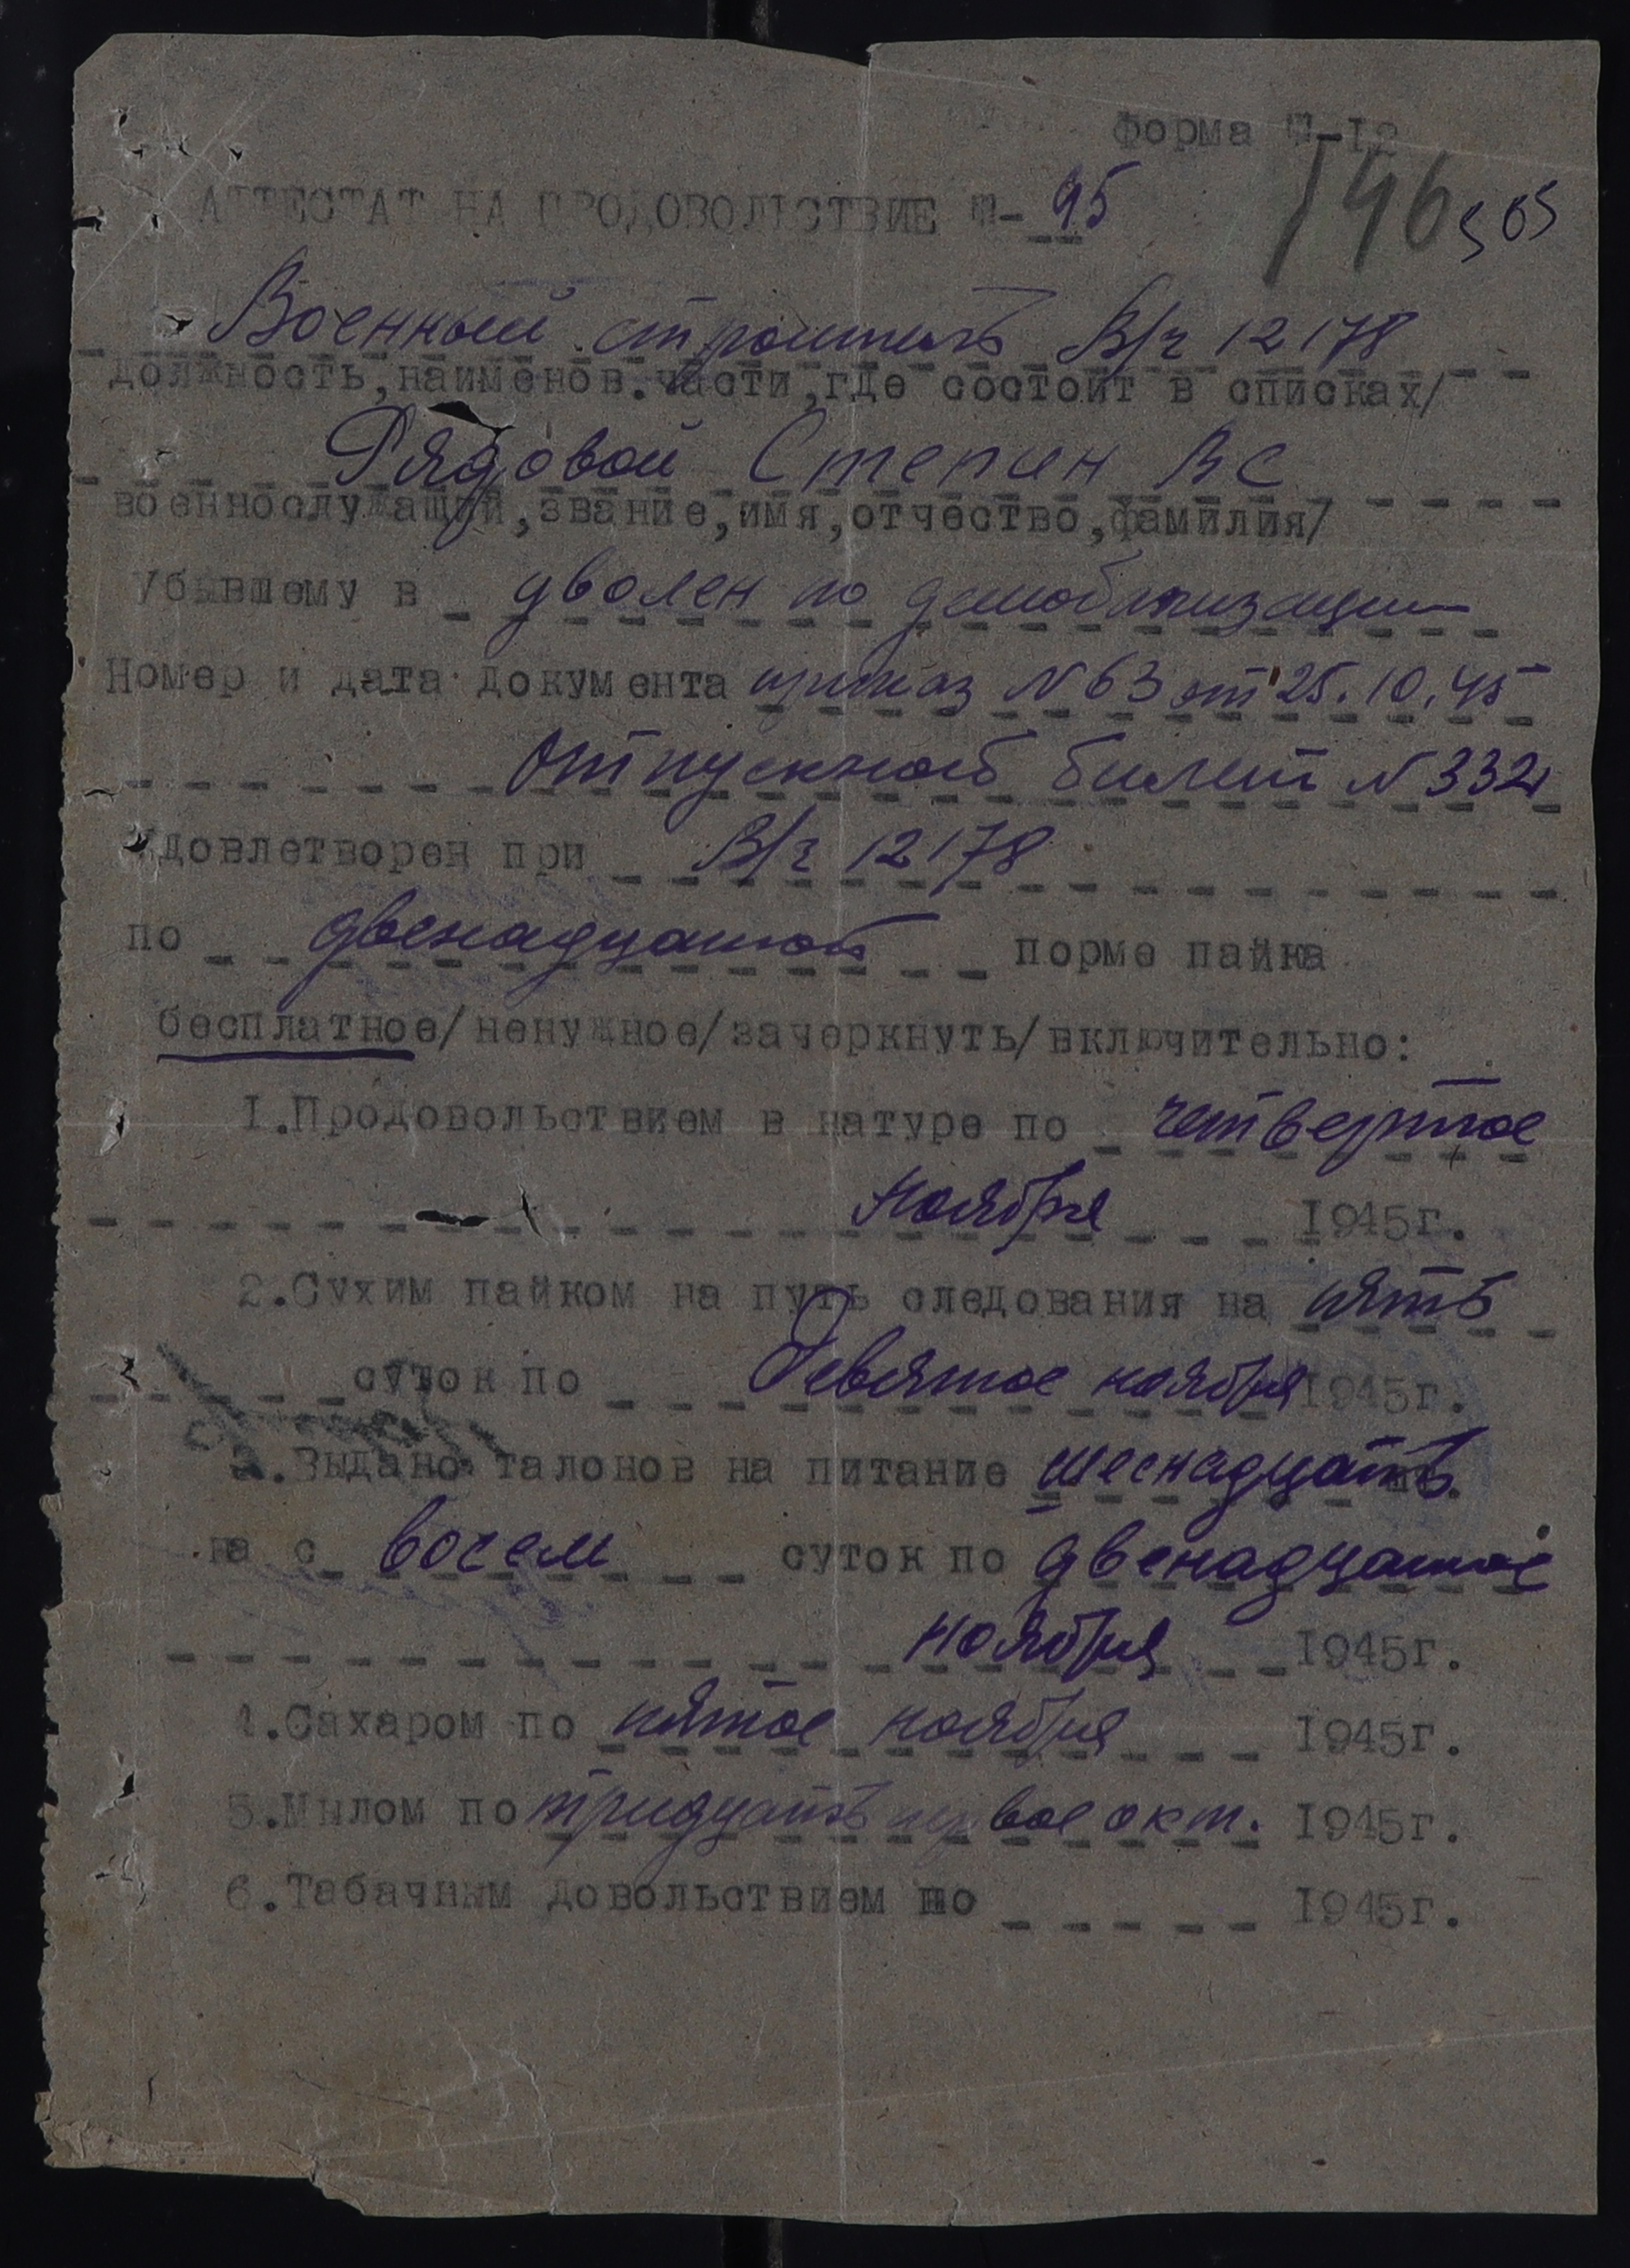 Форма №-12
146 505
АТТЕСТАТ НА ПРОДОВОЛЬСТВИЕ №- 95
Военный строитель В/ч 12178
должность,наименов.части,где состоит в списках/
Рядовой Степин ВС
военнослужащий,звание,имя,отчество,фамилия/
Убывшему в уволен по демобилизации
Номер и дата документа приказ N 63 от 25.10.45
отпускной билет N 332
Удовлетворен при В/ч 12178
по двенадцатой норме пайка
бесплатное/ненужное/зачеркнуть/включительно:
1.Продовольствием в натуре по четвертое
ноября 1945г.
2.Сухим пайком на путь следования на пять
суток по Девятое ноября 1945г.
3.Выдано талонов на питание шеснадцать
на с восем суток по двенадцатое
ноября 1945г.
4.Сахаром по пятое ноября 1945г.
5.Мылом по тридцать первое окт. 1945г.
6.Табачным довольствием по 1945г.